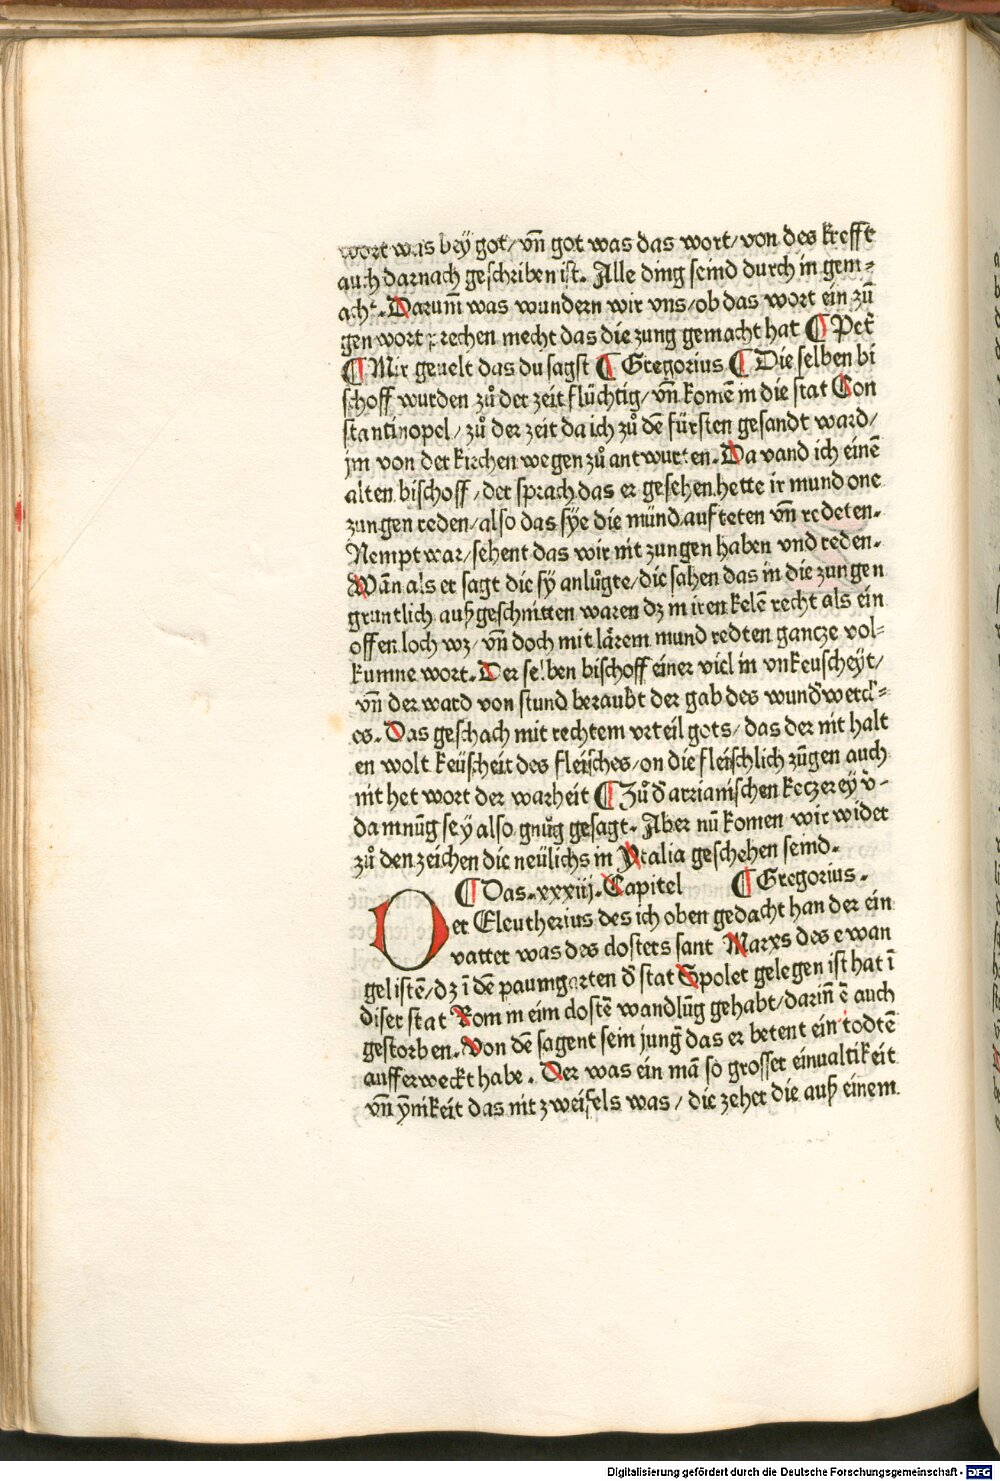 wort was bey̎ got/ vn̄ got was das wort/ von des krefft
auch darnach geschriben ist. Alle ding seind durch in gem⸗
acht. Darum̄ was wundern wir vns/ ob das wort ein zū
gen wort sprechen mecht das die zung gemacht hat ¶ Pet̄
¶ Mir geuelt das du sagst ¶ Gregorius ¶ Die selben bi
schoff wurden zů der zeit flüchtig/ vn̄ komē in die stat Con
stantinopel/ zů der zeit da ich zů dē fürsten gesandt ward/
jm von der kirchen wegen zů antwurten. Da vand ich einē
alten bischoff/ der sprach das er gesehen hette ir mund one
zungen reden/ also das sy̎e die münd auf teten vn̄ redeten.
Nempt war/ sehent das wir nit zungen haben vnd reden.
Wān als er sagt die sy̎ anlůgte/ die sahen das in die zungen
gruntlich außgeschnitten waren dz in iren kelē recht als ein
offen loch wz/ vn̄ doch mit lårem mund redten gancze vol⸗
kumne wort. Der selben bischoff einer viel in vnkeuschey̎t/
vn̄ der ward von stund beraubt der gab des wund̄werck⸗
es. Das geschach mit rechtem vrteil gots/ das der nit halt
en wolt keüscheit des fleisches/ on die fleischlich zūgen auch
nit het wort der warheit ¶ Zů d̄ arrianischen keczerey̎ v̄⸗
damnūg sey̎ also gnůg gesagt. Aber nū komen wir wider
zů den zeichen die neülichs in Ytalia geschehen seind.
¶ Das .xxxiij. Capitel ¶ Gregorius.
Der Eleutherius des ich oben gedacht han der ein
vatter was des closters sant Marxs des ewan
gelistē/ dz ī dē paumgarten d̄ stat Spolet gelegen ist hat ī
diser stat Rom in eim clostē wandlūg gehabt/ darīn ē auch
gestorben. Von dē sagent sein junḡ das er betent ein todtē
aufferweckt habe. Der was ein mā so grosser einualtikeit
vn̄ y̎nikeit das nit zweifels was/ die zeher die auß einem
Digitalisierung gefördert durch die Deutsche Forschungsgemeinschaft - DFG